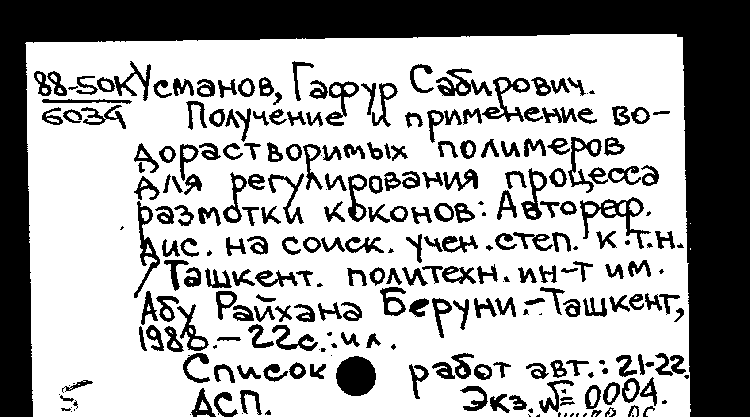 88-50К Усманов, Гафур Сабирович.
6034 Получение и применение во-
дорастворимых полимеров
для регулирования процесса
размотки коконов: Автореф.
дис. на соиск. учен. степ. к.т.н.
/ Ташкент. политехн. ин-т им.
Абу Райхана Беруни. - Ташкент,
1988. - 22с.: ил.
Список работ авт.: 21-22.
5 ДСП. Экз. № 0004.